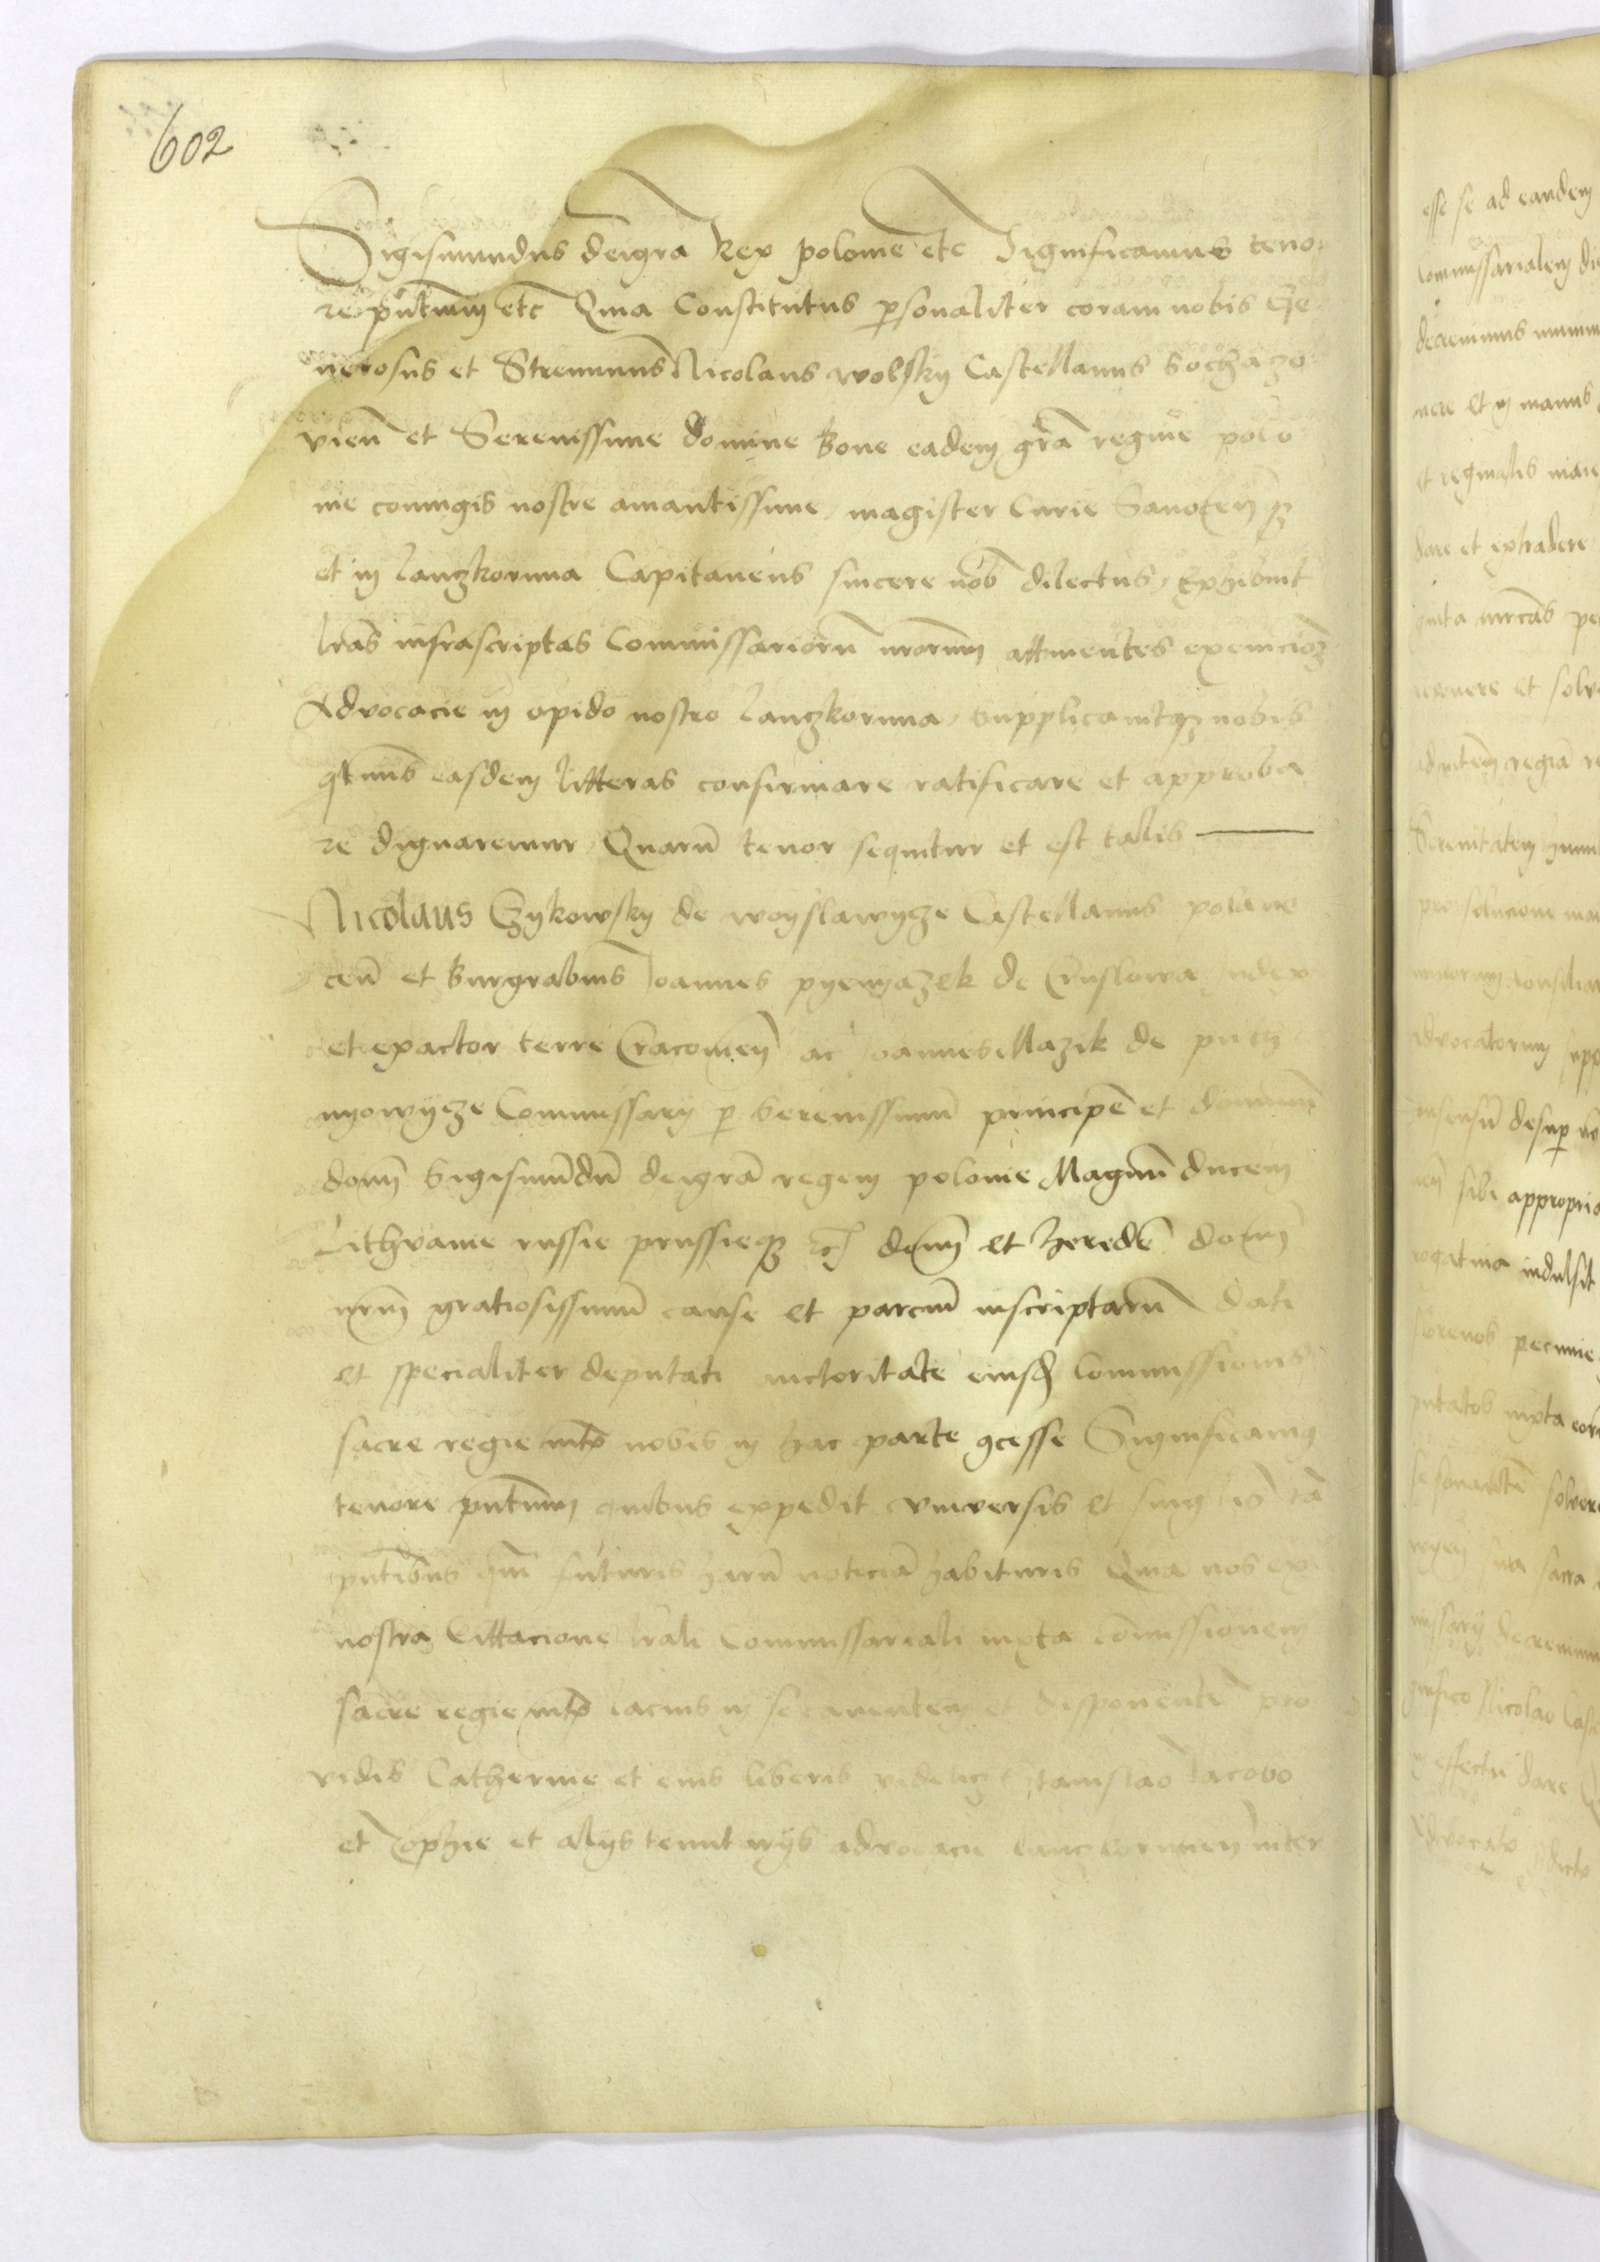 602
Sigismundus deigra Rex polonie etc Significamus teno
re pntium etc Quia Constitutus personaliter coram nobis Ge
nerosus et Strenuus Nicolaus wolsky Castellanus Sochazo
vien et Serenissime domine Bone eadem gra regine polo
nie coniugis nostre amantissime magister Curie Sanoceñ qz
et in lanczkoruna Capitaneus sincere nob dilectus, Exhibuit
lras infrascriptas Commissariorum nrorum attinentes exempcionem
Advocacie in opido nostro lanczkoruna, Supplicavitqz nobis
qtenus easdem litteras confirmare ratificare et approba
re dignaremur, Quarum tenor sequitur et est talis
Nicolaus Zykowsky de woyslawycze Castellanus polane
cen et Burgrabius Joannes pyenyazek de Cruslowa Judex
et exactor terre Cracovien ac Joannes Mazik de
nyowycze Commissary per Serenissimum principem et dominum
dom Sigismundum deigra regem polonie Magnum ducem
Lithvanie russie prussieqz etc dom et heredem dom
nrm gratiosissimum cause et parcium inscriptarum dati
et specialiter deputati auctoritate eiusd Commissionis
sacre regie mtis nobis in hac parte concesse Significamus
tenore pntium quibus expedit vniversis et singulis tam
pntibus qm futuris harum noticiam habituris Quia nos ex
nostra Cittacione lrali Commissariali iuxta comissionem
sacre regie mtis lacius in se caventem et disponentem pro
vidis Catherine et eius liberis videlicet Stanislao Jacobo
et Zophie et alys tenutarys advocacie lanczkorunen inter
esse se ad eandem
Commissarialem
decrevimus
nere et in manus
et reginalis
dare et extradere
solv
regia
Serenitatem
pro solucione
desuper
sibi appropria
indulsit
pecunie
iuxta
solvere
sua sacra
decrevimus
Nicolao Cas
effectu dare
Advocato